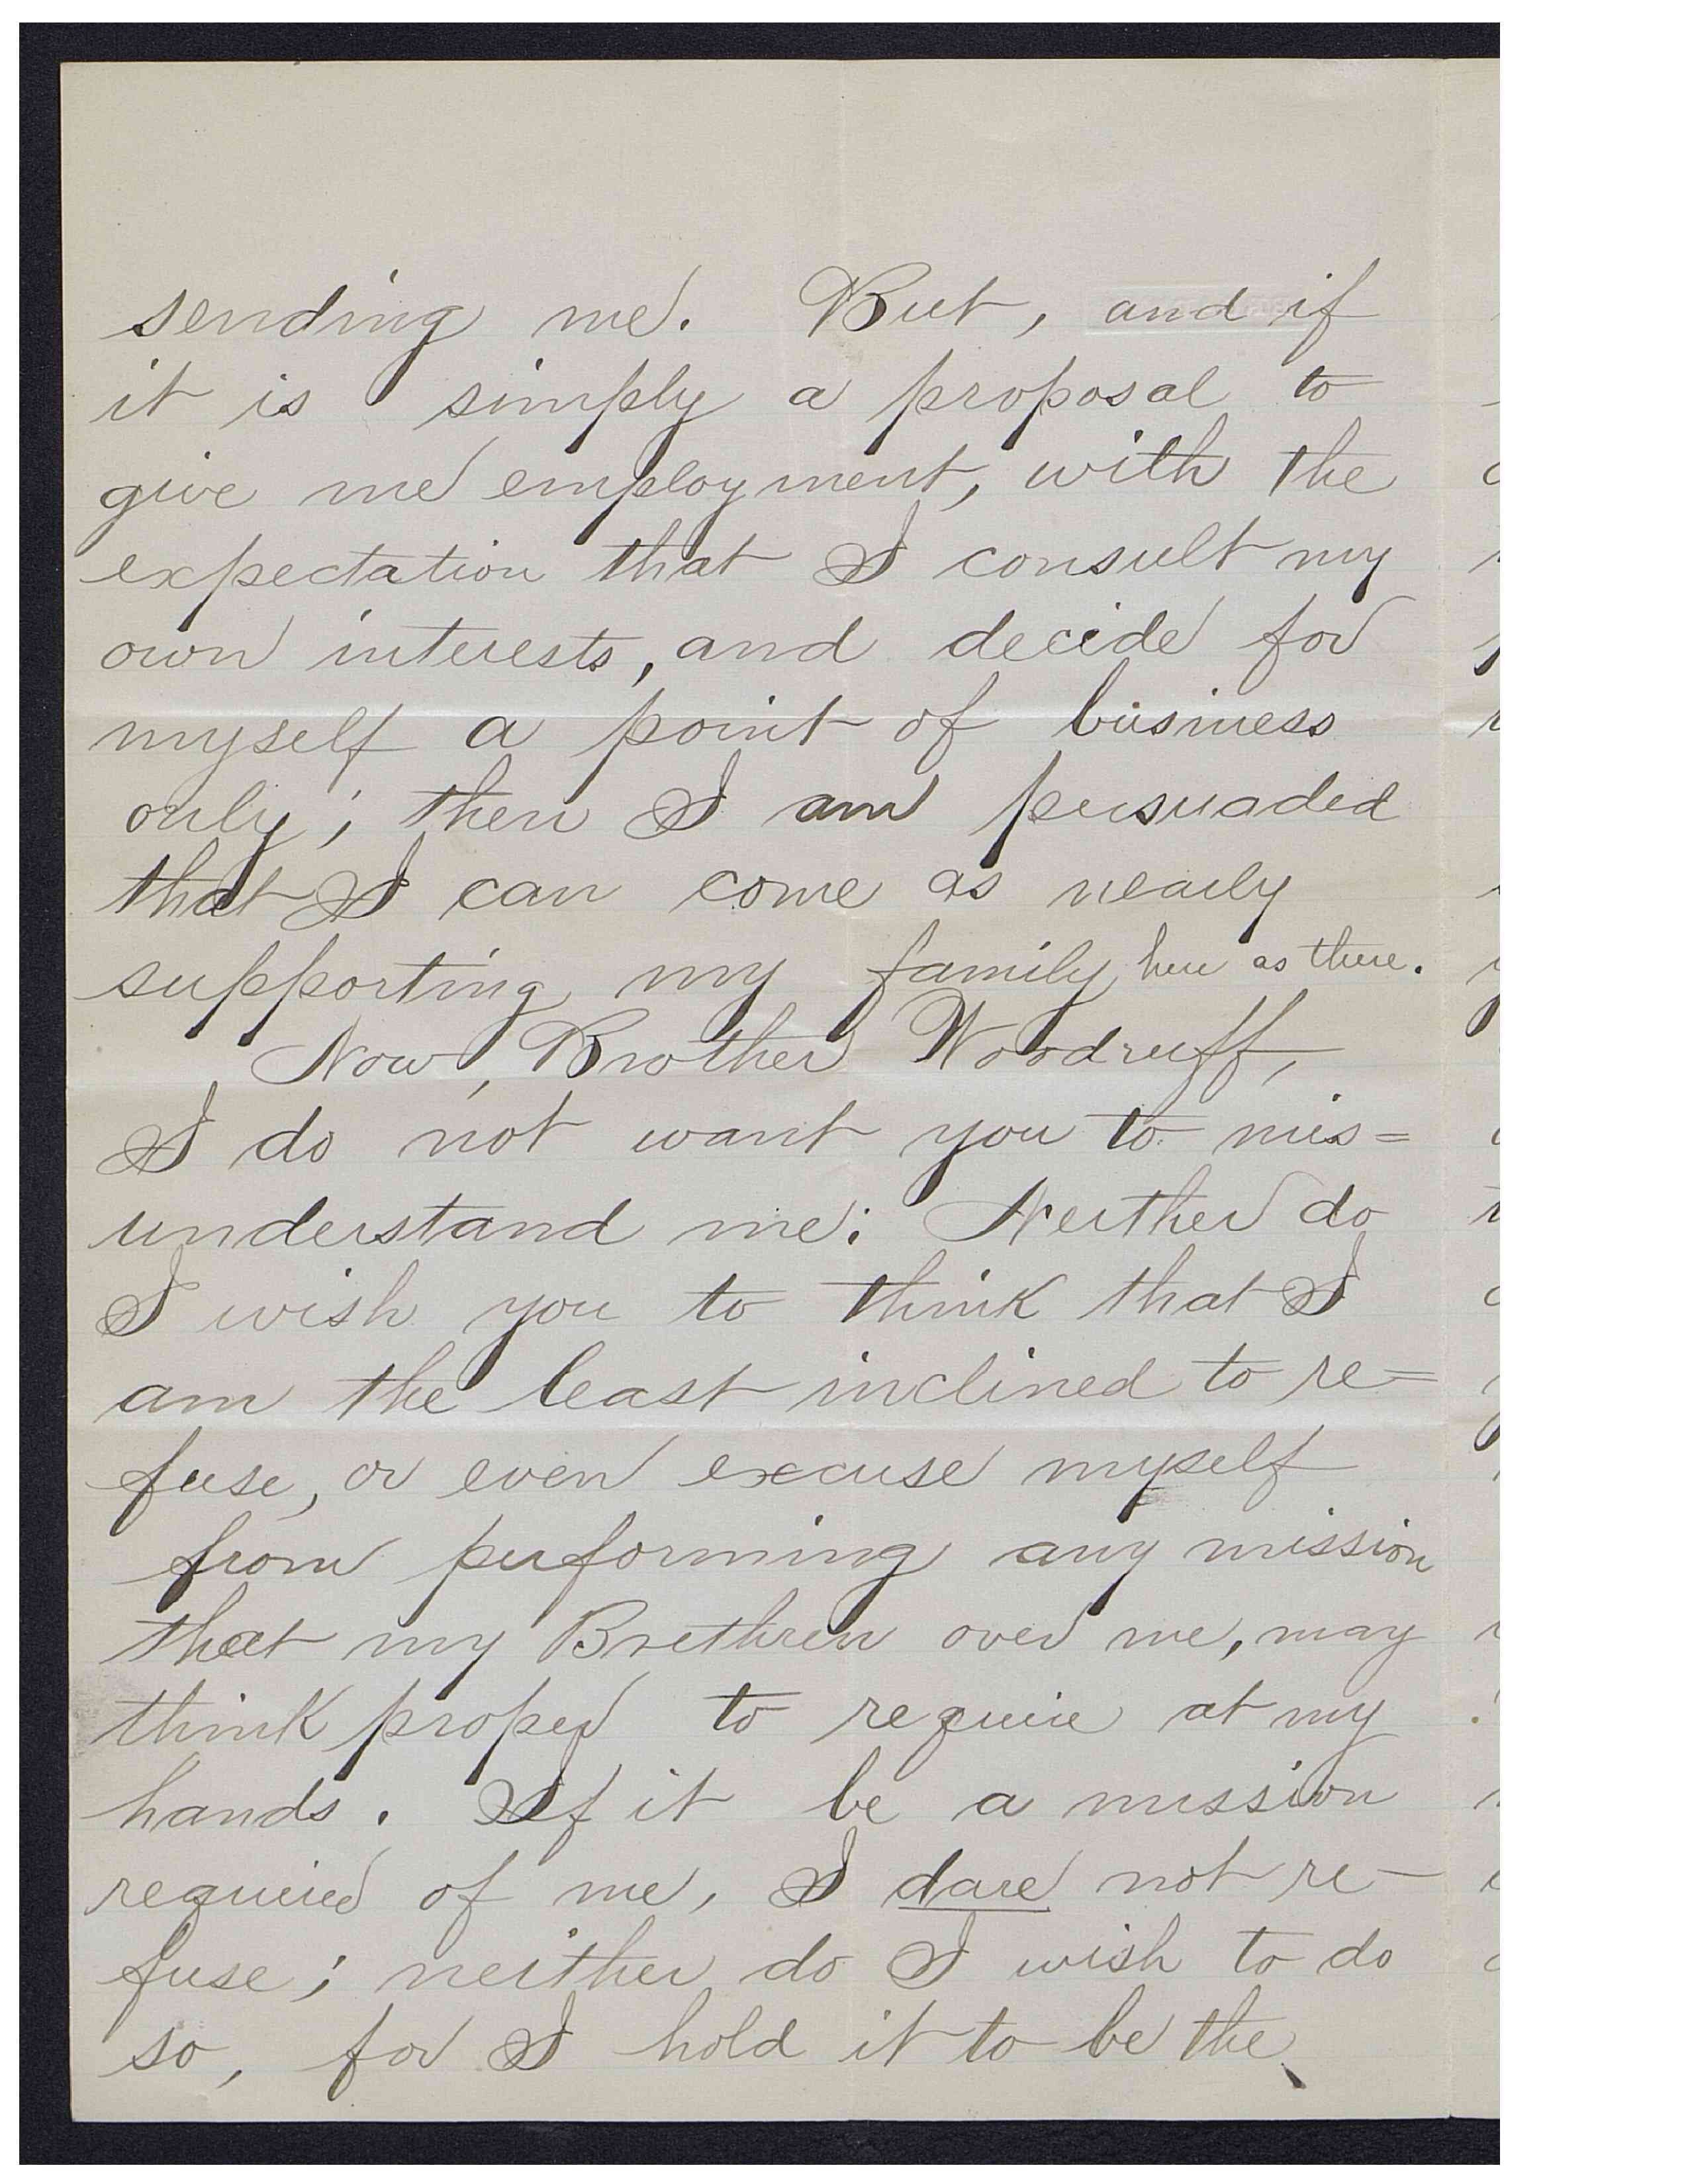 sending me. But, and if
it is simply a proposal to
give me employment, with the
expectation that I consult my
own interests, and decide for
myself a point of business
only; then I am persuaded
that I can come as nearly
supporting my family here as there.
Now, Brother Woodruff,
I do not want you to mis=
understand me: Neither do
I wish you to think that I
am the least inclined to re=
fuse, or even excuse myself
from performing any mission
that my Brethren over me, may
think proper to require at my
hands. If it be a mission
required of me, I dare not re-
fuse; neither do I wish to do
so, for I hold it to be the